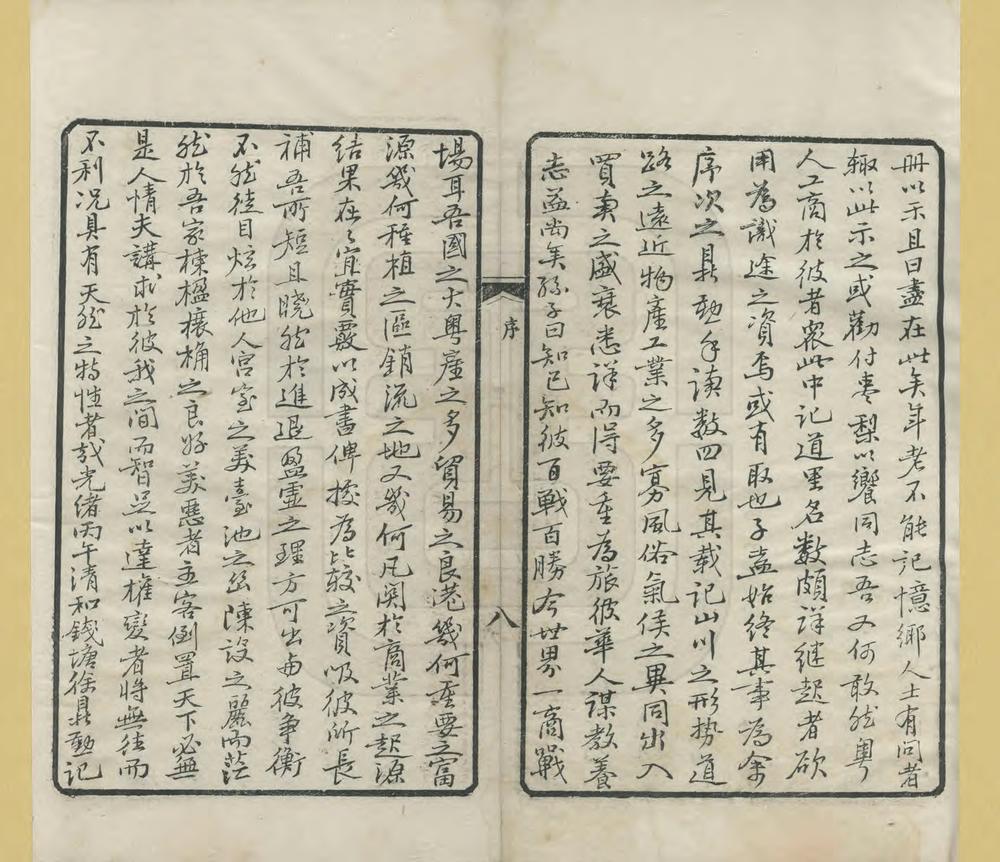 冊以示且曰盡在此矣年老不能記憶鄉人士有問者
輒以此示之或勸付棗梨以饗同志吾又何敢然粵
人工商於彼者衆此中記道里名數頗詳繼起者欲
用為識途之資焉或有取也子盍始終其事為余
序次之鼎勳手讀數四見其載記山川之形勢道
路之遠近物產工業之多寡風俗氣候之異同出入
買賣之盛衰悉詳而得要重為旅彼華人謀教養
志益尚矣孫子曰知己知彼百戰百勝今世界一商戰
序
八
場耳吾國之大粵產之多貿易之良港幾何至要之富
源幾何種植之區銷流之地又幾何凡関於商業之起源
結果在々宜實覈以成書俾據為比較之資吸彼所長
補吾所短且曉然於進退盈虛之理方可出與彼爭衡
不然徒目炫於他人宮室之美臺池之幽陳設之麗而茫
然於吾家棟楹榱桷之良好美惡者主客倒置天下必無
是人情夫講求於彼我之間而智足以達權變者將無往而
不利况具有天然之特性者哉光緒丙午清和錢塘徐鼎勳記